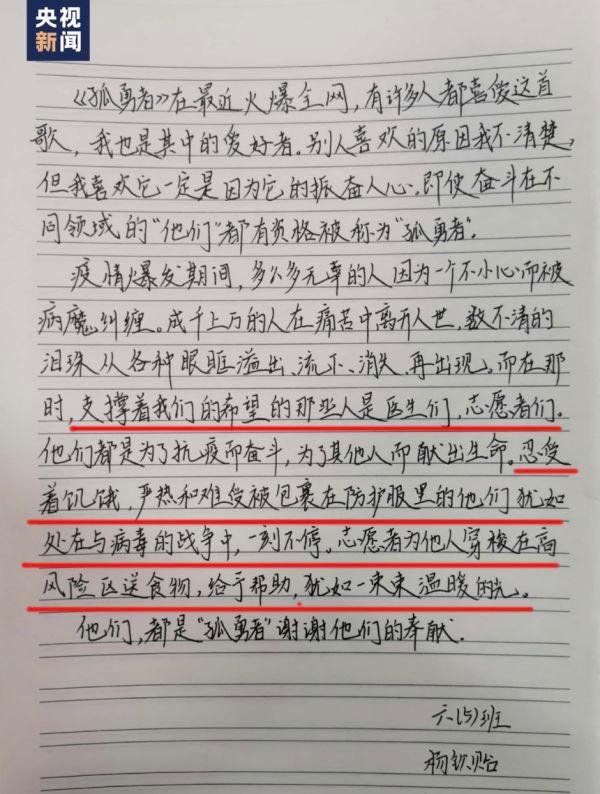 央视
新闻
《孤勇者》在最近火爆全网,有许多人都喜爱这首
歌,我也是其中的爱好者。别人喜欢的原因我不清楚,
但我喜欢它一定是因为它的振奋人心。即使奋斗在不
同领域的“他们”都有资格被称为“孤勇者”。
疫情爆发期间,多么多无辜的人因为一个不小心而被
病魔纠缠。成千上万的人在痛苦中离开人世,数不清的
泪珠从各种眼眶溢出、流下、消失、再出现。而在那
时,支撑着我们的希望的那些人是医生们,志愿者们。
他们都是为了抗疫而奋斗,为了其他人而献出生命。忍受
着饥饿,严热和难受被包裹在防护服里的他们犹如
处在与病毒的战争中,一刻不停。志愿者为他人穿梭在高
风险区送食物,给予帮助,犹如一束束温暖的光。
他们,都是“孤勇者”谢谢他们的奉献.
六(5)班
杨钦贻